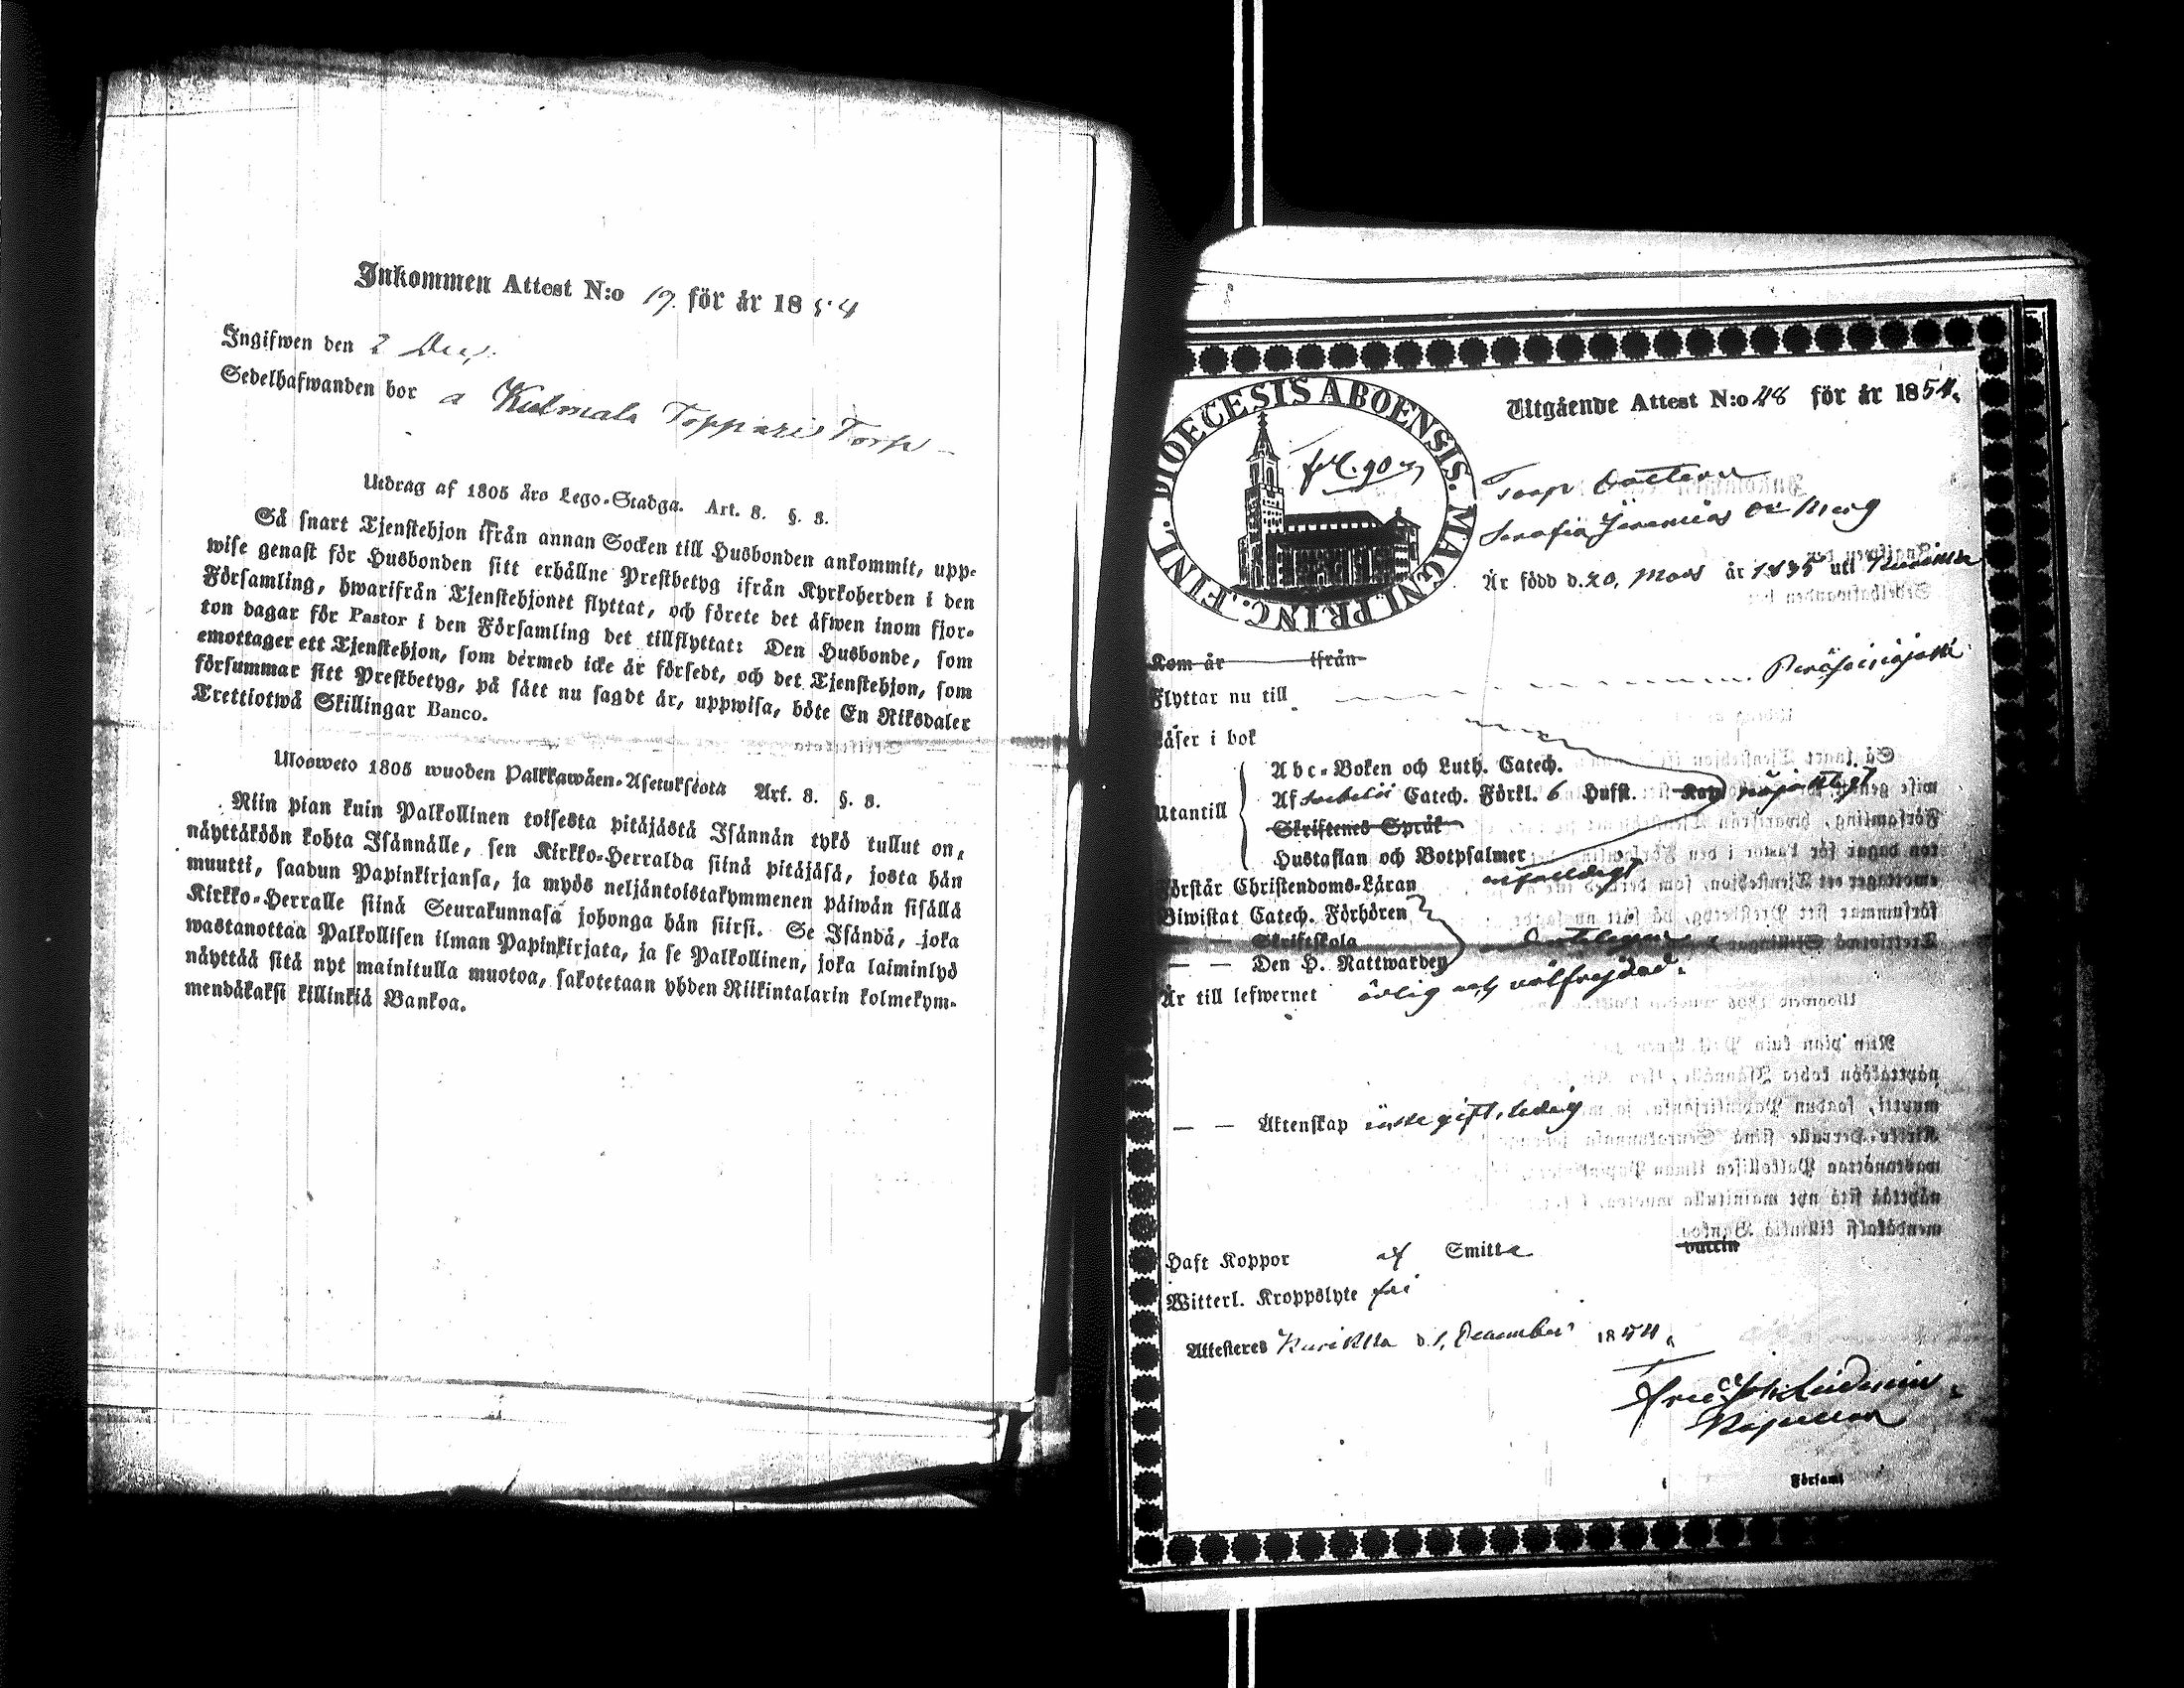 Inkommen Attest N:o 19. för år 1854
Ingifwen den 2 Dec.
Sedelhafwanden bor a Kulmala Toppari Torp
Utdrag af 1805 års Lego-Stadga. Art. 8. §. 3.
Så snart Tjenstehjon ifrån annan Socken till Husbonden ankommit, upp-
wise genast för Husbonden sitt erhållne Prestbetyg ifrån Kyrkoherden i den
Församling, hwarifrån Tjenstehjonet flyttat, och förete det äfwen inom fjor-
ton dagar för Pastor i den Församling det tillflyttat: Den Husbonde, som
emottager ett Tjenstehjon, som dermed icke är försedt, och det Tjenstehjon, som
försummar sitt Prestbetyg, på sätt nu sagdt är, uppwisa, böte En Riksdaler
Trettiotwå Skillingar Banco.
Ulosweto 1805 wuoden Palkkawäen-Asetuksesta Art. 8. §. 3.
Niin pian kuin Palkollinen toisesta pitäjästä Isännän tykö tullut on,
näyttäköön kohta Isännälle, sen Kirkko-Herralda siinä pitäjäsä, josta hän
muutti, saadun Papinkirjansa, ja myös neljäntoistakymmenen päiwän sisällä
Kirkko-Herralle siinä Seurakunnasa johonga hän siirsi. Se Isändä, joka
wastanottaa Palkollisen ilman Papinkirjata, ja se Palkollinen, joka laiminlyö
näyttää sitä nyt mainitulla muotoa, sakotetaan yhden Riikintalarin kolmekym-
mendäkaksi killinkiä Bankoa.
DIOECESIS ABOENSIS. MAGNI PRINC. FINL.
fol. 90
Utgående Attest N:o 48 för år 1854.
Torp Dottern
Serafia Jeremias
Är född d. 20. Mars år 1835 uti Kurikka
Kom år ifrån
Flyttar nu till Peräseinäjoki
Läser i bok
Abc-Boken och Luth. Catech.
Utantill Af Svebelii Catech. Förkl. 6 Hufst. nöjaktigt
Skriftenes Språk
Hustaflan och Botpsalmer
Förstår Christendoms-Läran enfaldigt
Biwistat Catech. Förhören
— — Skriftskola
— — Den H. Nattwarden
Är till lefwernet ärlig och välfrejdad.
— — Äktenskap icke gift, ledig
Haft Koppor af Smitta
Witterl. Kroppslyte fri
Attesteres Kurikka d. 1. December 1854.
Församl